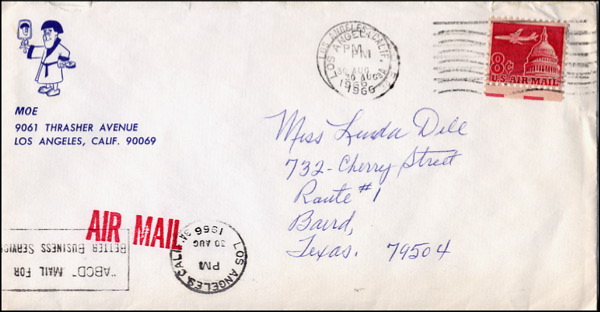 MOE
9061 THRASHER AVENUE
LOS ANGELES, CALIF. 90069
LOS ANGELES, CALIF.
PM
30 AUG
1966
8¢
U.S. AIR MAIL
Miss Linda Dell
732-Cherry Street
Route #1
Baird,
Texas. 79504
AIR MAIL
LOS ANGELES, CALIF.
PM
30 AUG
1966
"ABCD" MAIL FOR
BETTER BUSINESS SERVICE